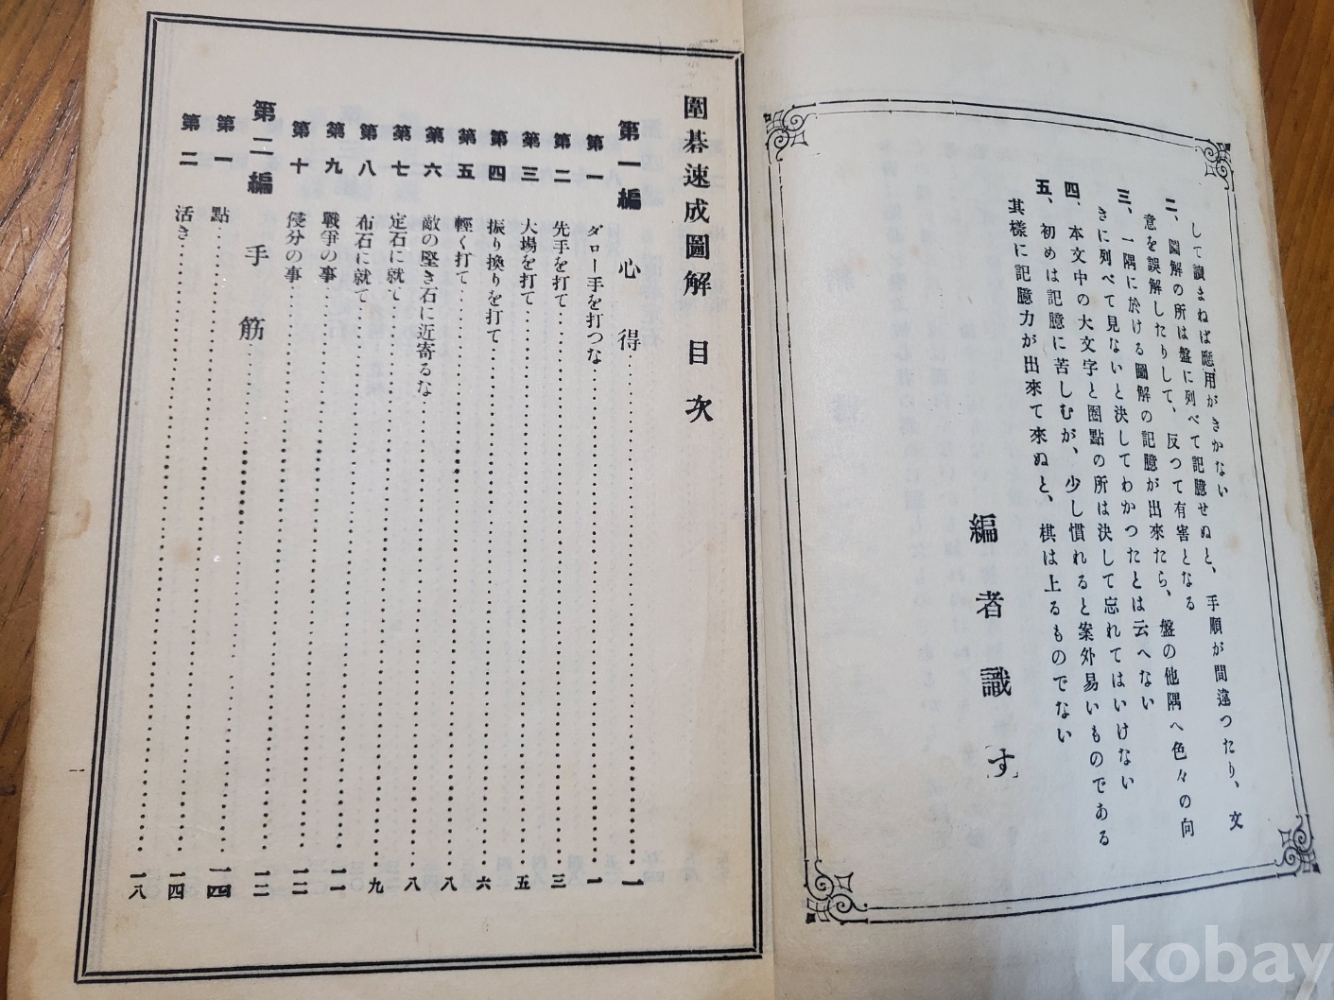 して讀まねば應用がきかない
二、圖解の所は盤に列べて記臆せぬと、手順が間違つたり、文
意を誤解したりして、反つて有害となる
三、一隅に於ける圖解の記臆が出來たら、盤の他隅へ色々の向
きに列べて見ないと決してわかつたとは云へない
四、本文中の大文字と圈點の所は決して忘れてはいけない
五、初めは記臆に苦しむが、少し慣れると案外易いものである
其樣に記臆力が出來て來ぬと、棋は上るものでない
編者識す
圍碁速成圖解目次
第一編 心得……一
第一 ダロー手を打つな……一
第二 先手を打て……三
第三 大場を打て……五
第四 振り換りを打て……六
第五 輕く打て……八
第六 敵の堅き石に近寄るな……八
第七 定石に就て……九
第八 布石に就て……一一
第九 戰爭の事……一二
第十 侵分の事……一二
第二編 手筋……一四
第一 點……一四
第二 活き……一八
一
kobay